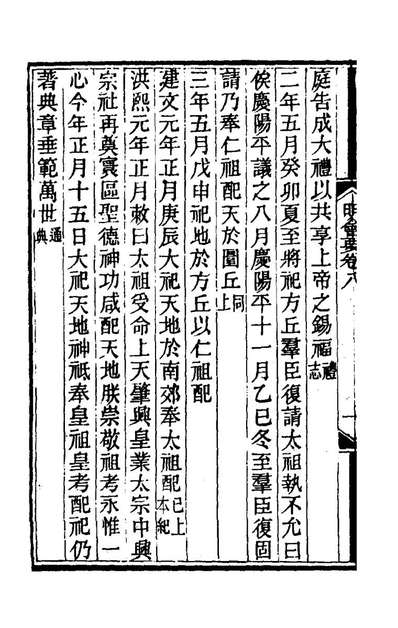 庭告成大禮以共享上帝之錫福禮志
二年五月癸卯夏至將祀方丘羣臣復請太祖執不允曰
俟慶陽平議之八月慶陽平十一月乙巳冬至羣臣復固
請乃奉仁祖配天於圜丘同上
三年五月戊申祀地於方丘以仁祖配
建文元年正月庚辰大祀天地於南郊奉太祖配已上本紀
洪熙元年正月敕曰太祖受命上天肇興皇業太宗中興
宗社再奠寰區聖德神功咸配天地朕崇敬祖考永惟一
心今年正月十五日大祀天地神祇奉皇祖皇考配祀仍
著典章垂範萬世通典
明會要卷八
一